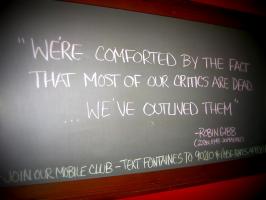 "WE'RE COMFORTED BY THE FACT
THAT MOST OF OUR CRITICS ARE DEAD.
... WE'VE OUTLIVED THEM"
-ROBIN GIBB
JOIN OUR MOBILE CLUB - TEXT FONTAINES TO